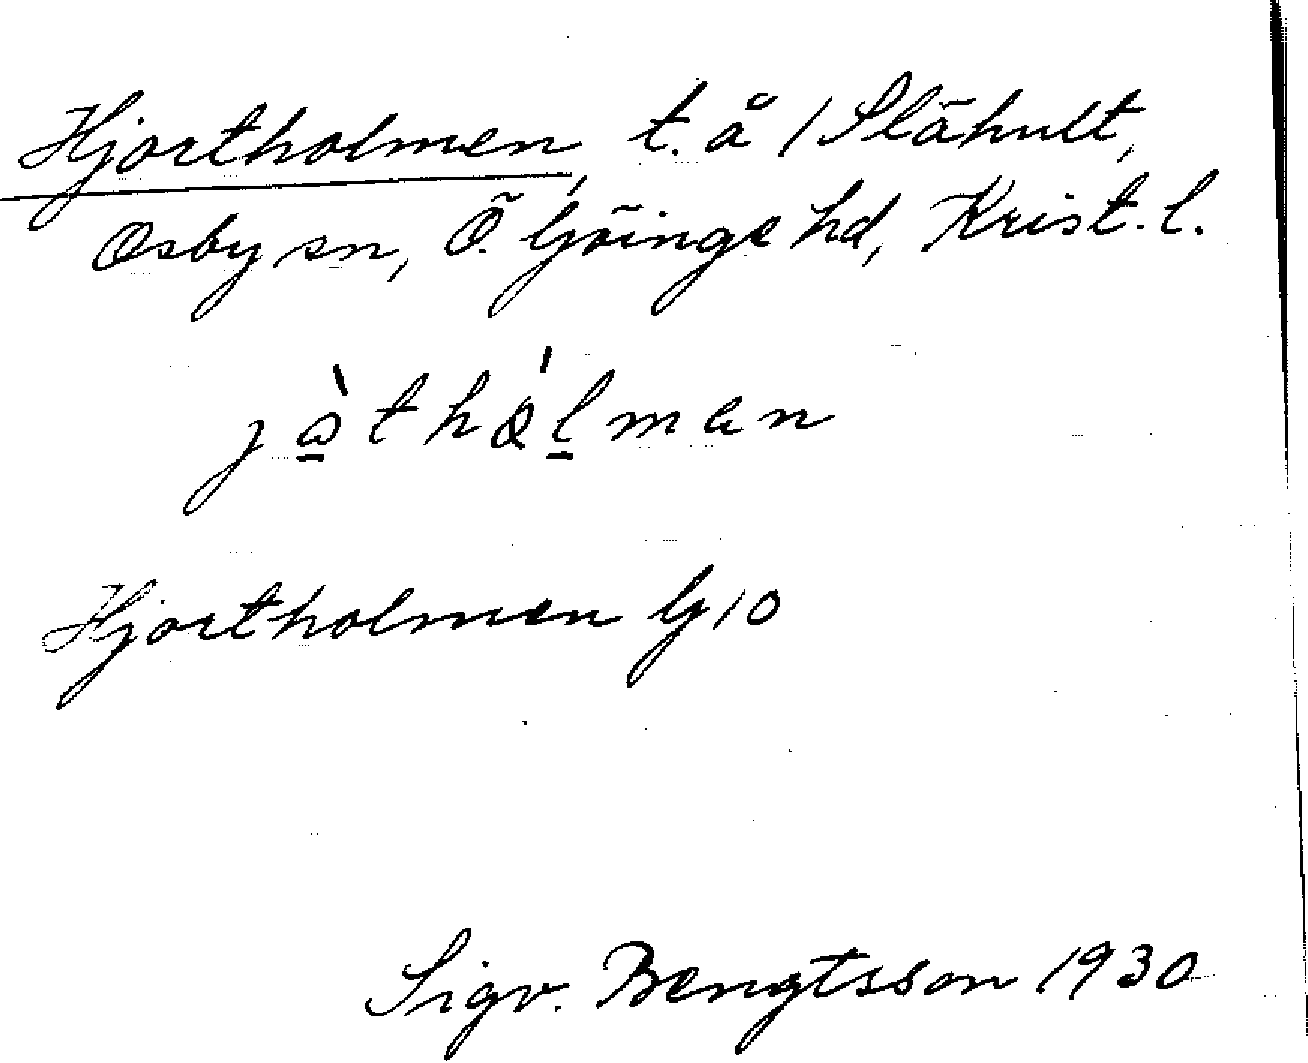 Hjortholmen, t. å 1 Slähult,
Osby sn, Ö. Göinge hd, Krist. l.
jὰthǿlmαn
Hjortholmen G 10
Sigv. Bengtsson 1930